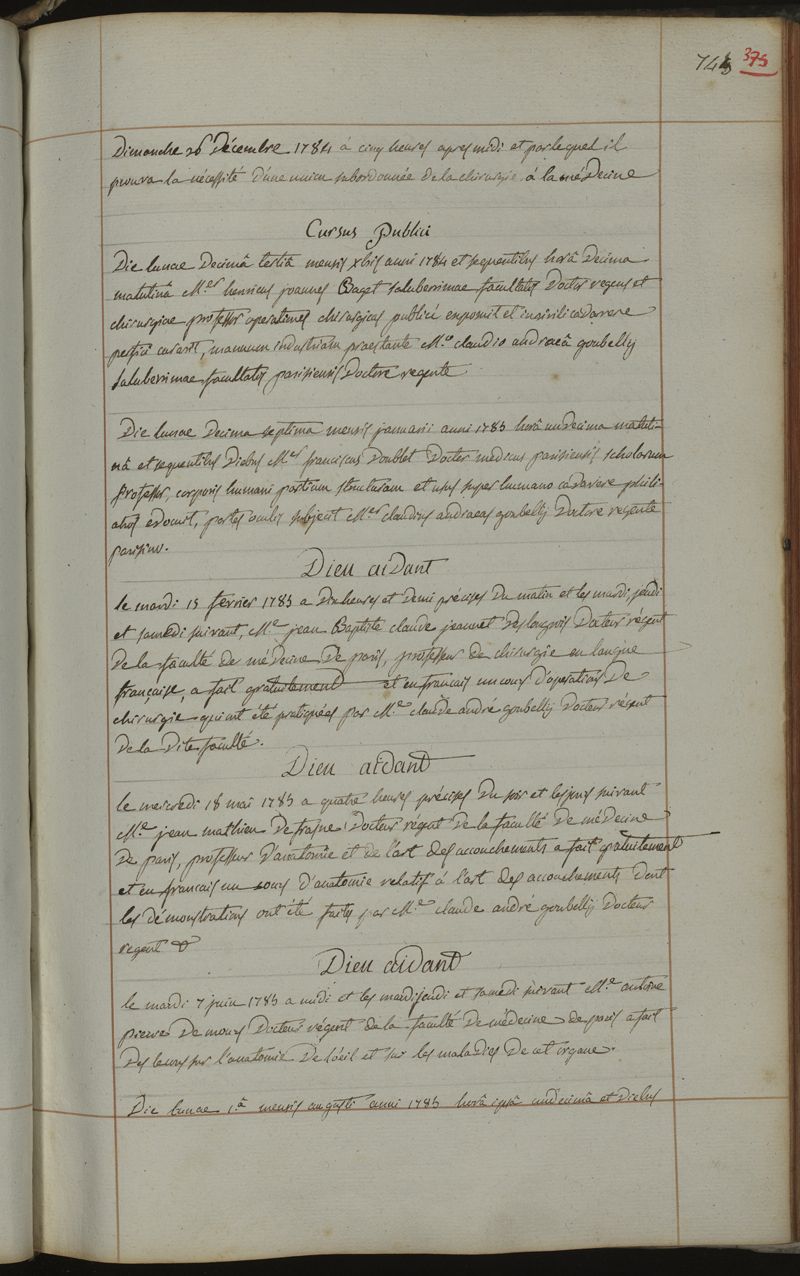 745 375
Dimanche 26 Décembre 1784 à cinq heures apres midi et par lequel il
prouva la nécessité d'une union subordonnée de la chirurgie à la médecine
Cursus Publici
Die lunae Decimâ tertiâ mensis xbris anni 1784 et sequentibus horâ Decima
matutinâ M.er henricus joannes Baget saluberrimae facultatis Doctor regens et
chirurgiae professor operationes chirurgicas publicè exposuit et in civili cadavere
perfici curavit, manuum industriam praestante M.o claudio andraeâ goubelly
saluberrimae facultatis parisiensis Doctore regente
Die lunae Decima septima mensis januarii anni 1785 horâ undecima matuti-
nâ et sequentibus Diebus M.er franciscus Doublet Doctor medicus parisiensis scholarum
Professor, corporis humani partium structuram et usus super humano cadavere publi-
edocuit, partes oculis subjecit M.er claudius andraeas goubelly Doctore regente
parisino.
Dieu aidant
le mardi 15 fevrier 1785 a dix heures et demi précises du matin et les mardi, jeudi
et samedi suivant, M.e jean Baptiste claude jeannet Deslongrois Docteur régent
De la faculté de médecine De paris, professeur de chirurgie en langue
française, a fait gratuitement et en francais un cours d'operations De
chirurgie qui ont été pratiquées par M.e claude andré goubelly Docteur régent
De la Dite faculté.
Dieu aidant
le mercredi 18 mai 1785 a quatre heures précises Du soir et les jours suivant
M.e jean mathieu De frasne Docteur régent De la faculté De médecine
De paris, professeur D'anatomie et de l'art des accouchements a fait gratuitement
et en francais un cours d'anatomie relatif à l'art Des accouchements Dont
les démonstrations ont été faites par M.e claude andré goubelly Docteur
regent &
Dieu aidant
le mardi 7 juin 1785 a midi et les mardi jeudi et samedi suivant M.e antoine
pierre De mours Docteur régent de la faculté De médecine de paris a fait
Des lecons sur l'anatomie De l'oeil et sur les maladies De cet organe.
Die lunae 1.â mensis augusti anni 1785 horâ ipsâ undecimâ et Diebus